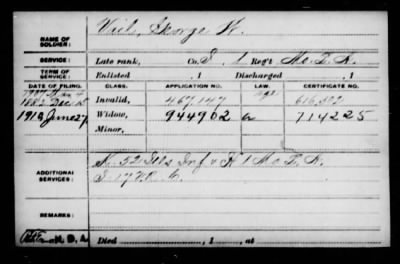 NAME OF SOLDIER: George W.
SERVICE: Late rank, Co. I 1 Reg't Mo. L. A.
TERM OF SERVICE: Enlisted , 1 Discharged , 1
DATE OF FILING. CLASS. APPLICATION NO. LAW. CERTIFICATE NO.
1882 Dec Invalid, 467,147
1912 June 27 Widow, 944902 714225
Minor,
ADDITIONAL SERVICES: K. 52 Ills Inf & H 1 Mo L. A.
I 17 V.R.C.
REMARKS:
N.D.A. Died , 1 , at